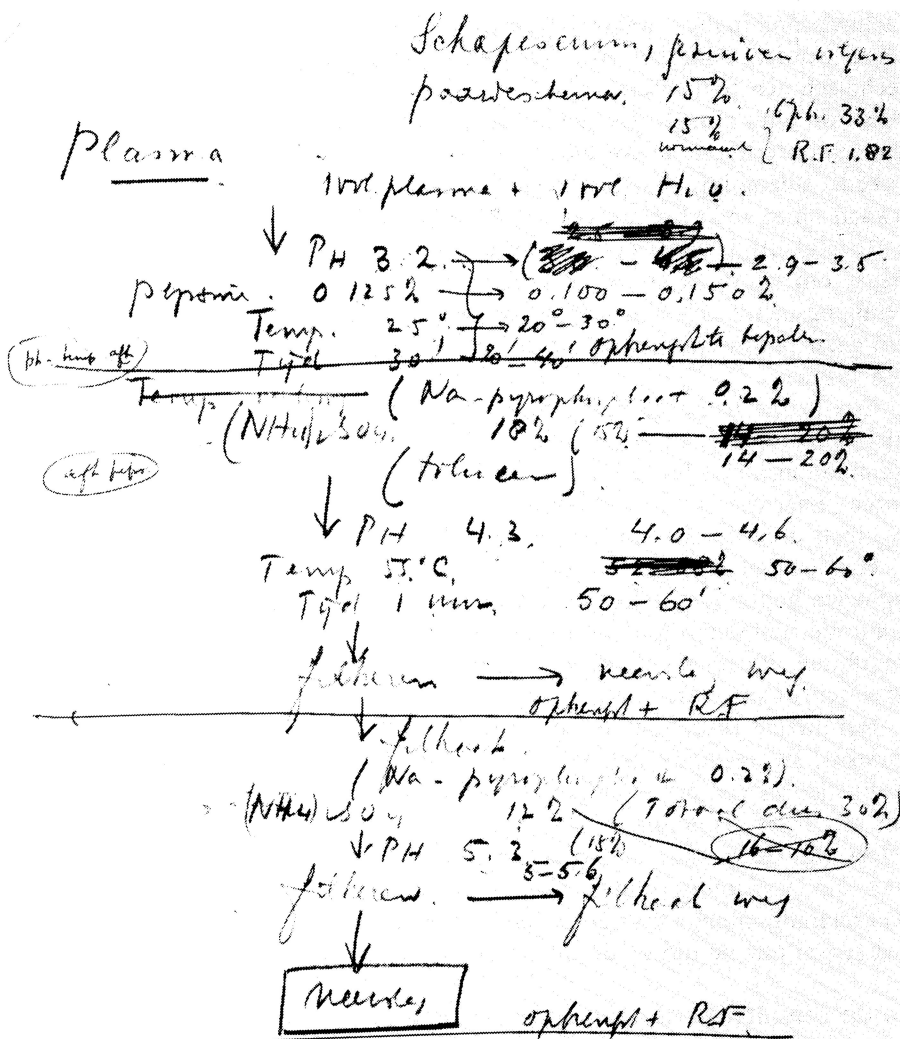 Schapeserum,
paardeschema. 15%
15% 33%
R.F. 1.82
Plasma
1 vol. plasma + 1 vol H2O.
PH 3.2. → ( - ) - 2.9 - 3.5
Pepsine. 0.125% → 0.100 - 0,150%
Temp. 25° → 20° - 30°
Tijd 30' - 20' - 40' opbrengst te bepalen
ph - temp afh
Temp
(Na-pyrophosphaat 0.2%)
(NH4)2SO4 18% (15% — 14 - 20%
14 - 20%
(tolueen)
afh peps
PH 4.3. 4.0 - 4.6.
Temp 55°C. 50-60°
Tijd 1 uur. 50 - 60'
filtreren → neerslag weg.
opbrengst + R.F
filtraat.
(Na-pyrophosphaat 0.2%).
(NH4)2SO4 12% (Totaal dus 30%)
PH 5.3 (15% 16-10%
5-5.6
filtreren. → filtraat weg
neerslag
opbrengst + R.F.